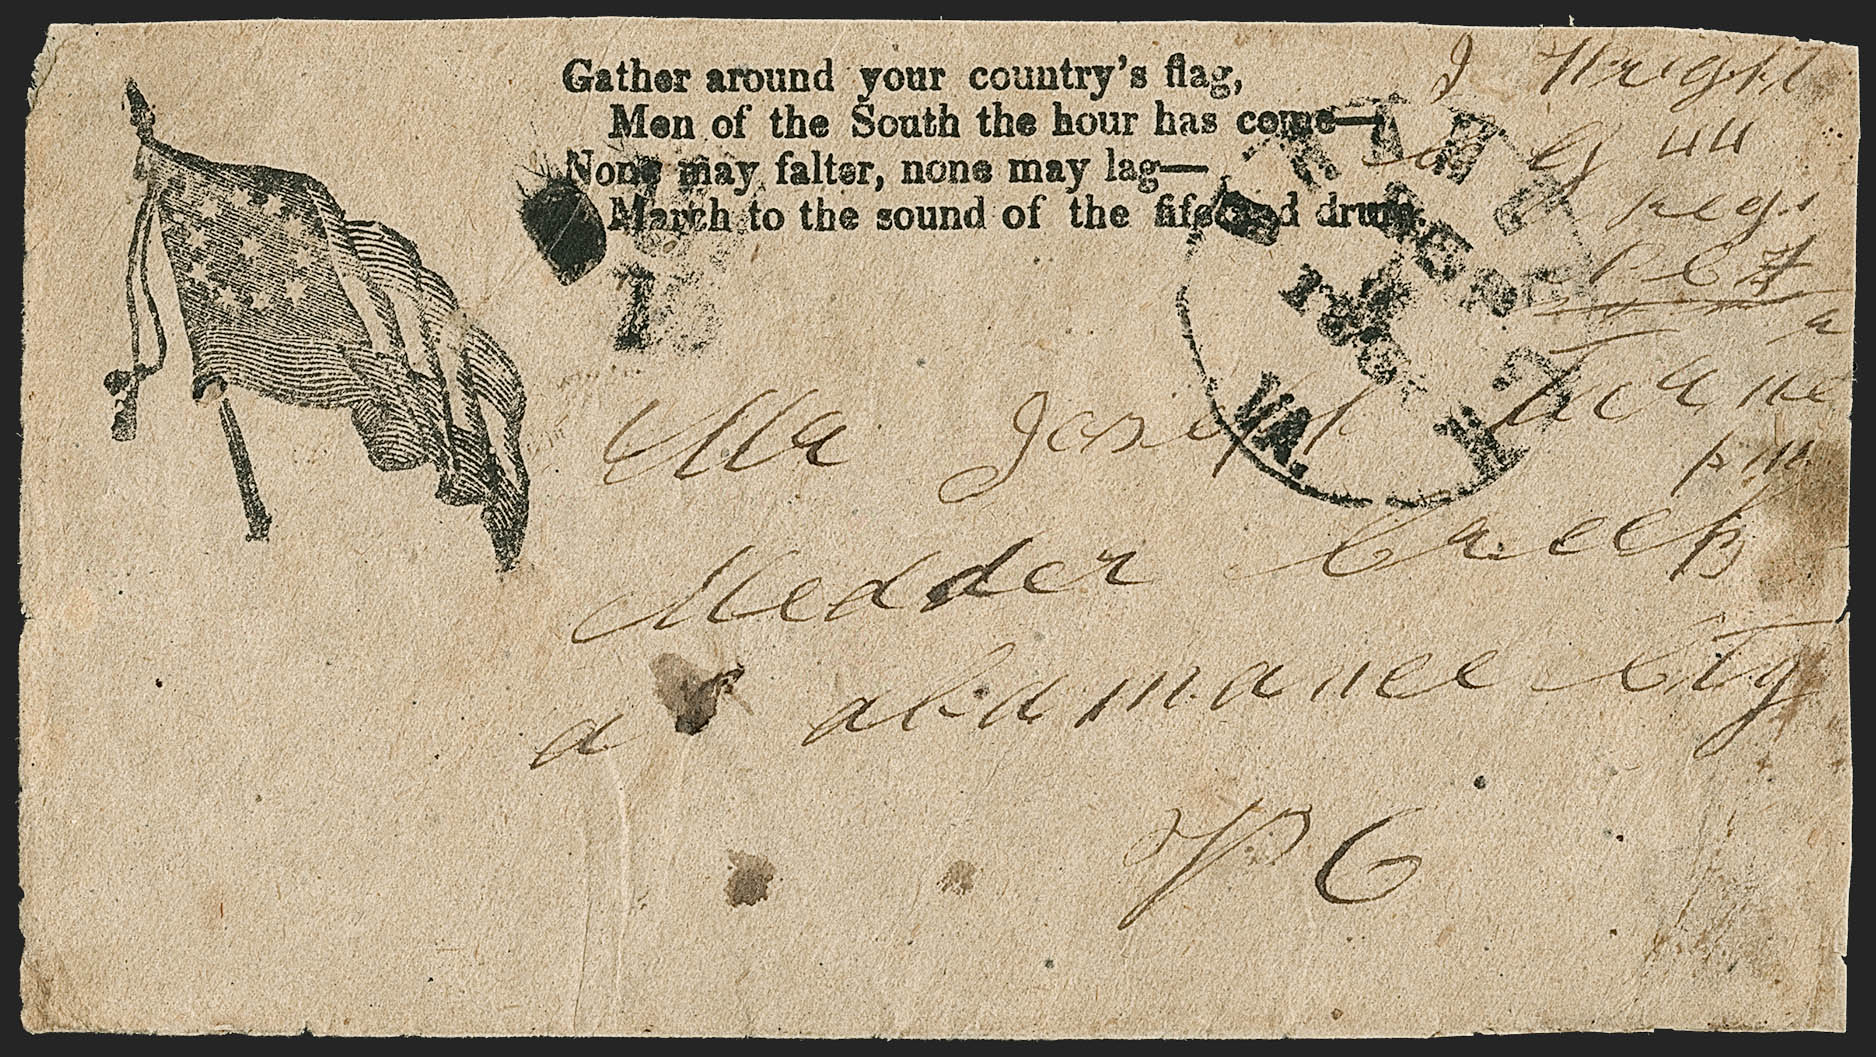 Gather around your country's flag,
Men of the South the hour has come—
None may falter, none may lag—
March to the sound of the fife and drum.
J Wright
co G 44
Regt
N C T
SEP
186
VA.
10
Mr Joseph
Medder Creek
alamance Cty
N C